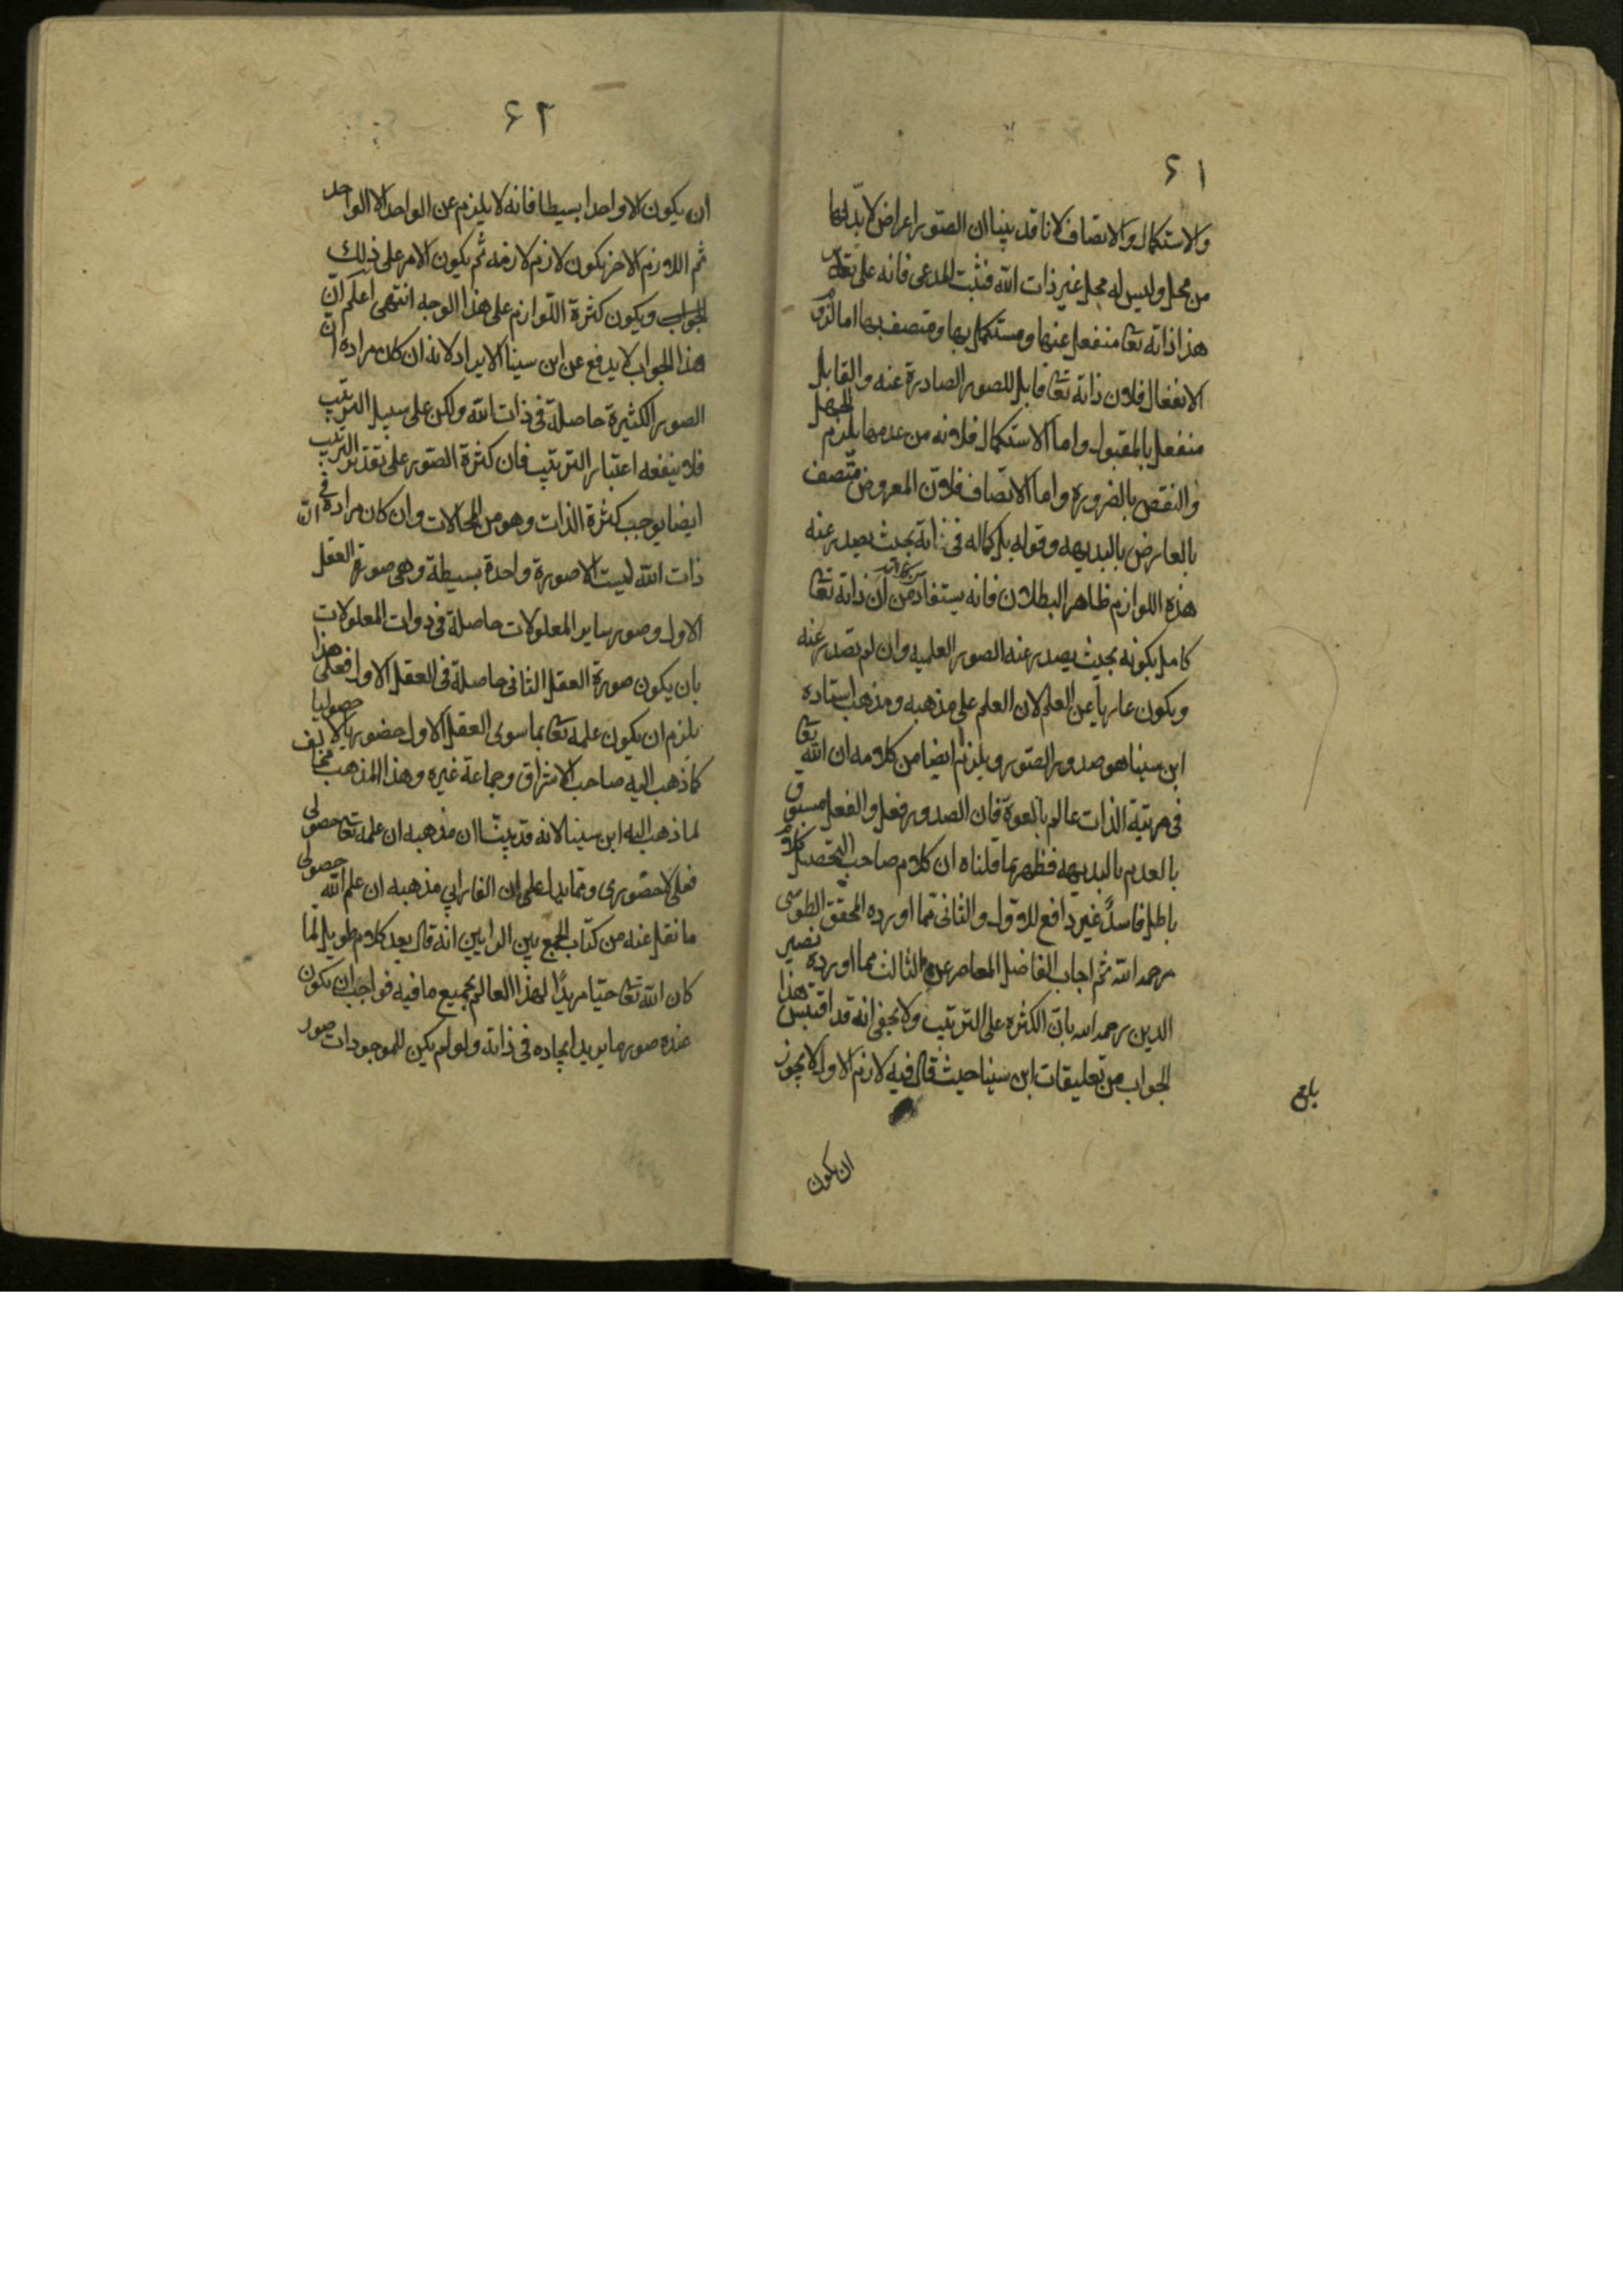 ٦١
والاستكمال والاتصاف لانا قد بينا ان الصور اعراض لا بد لها
من محل وليس له محل غير ذات الله فثبت المدعى فانه على تقدير
هذا ذاته تعا منفعل عنها ومستكمل بها ومتصف بها اما لزوم
الانفعال فلان ذاته تعا قابل للصور الصادرة عنه والقابل
منفعل بالمقبول واما الاستكمال فلانه من عدمها يلزم الجهل
والنقص بالضروره واما الاتصاف فلان المعروض متصف
بالعارض بالبديهه وقوله بل كماله في ذاته بحيث يصدر عنه
هذه اللوازم ظاهر البطلان فانه يستفاد من ان ذاته تعا
كامل بكونه بحيث يصدر عنه الصور العلميه وان لم تصدر عنه
ويكون عاريا عن العلم لان العلم على مذهبه ومذهب استاده
ابن سينا هو صدور الصور ويلزم ايضا من كلامه ان الله تعا
في مرتبة الذات عالم بالقوة فان الصدور فعل والفعل مسبوق
بالعدم بالبديهه فظهر بما قلناه ان كلام صاحب التحصيل كلام
باطل فاسد غير دافع للاول والثانى مما اورده المحقق الطوسى
رحمه الله ثم اجاب الفاضل المعاصر عن الثالث مما اورده نصير
الدين رحمه الله بان الكثره على الترتيب ولا يخفى انه قد اقتبس هذا
الجواب من تعليقات ابن سينا حيث قال فيه لازم الاول لا يجوز
بلغ
ان يكون
٦٢
ان يكون الا واحدا بسيطا فانه لا يلزم عن الواحد الا الواحد
ثم اللازم الاخر يكون لازم لازمه ثم يكون الامر على ذلك
الجواب ويكون كثرة اللوازم على هذا الوجه انتهى اعلم ان
هذا الجواب لا يدفع عن ابن سينا الايراد لانه ان كان مراده ان
الصور الكثيرة حاصلة في ذات الله ولكن على سبيل الترتيب
فلا ينفعه اعتبار الترتيب فان كثرة الصور على تقدير الترتيب
ايضا يوجب كثرة الذات وهو من المحالات وان كان مراده ان في
ذات الله ليست الا صورة واحدة بسيطة وهى صورة العقل
الاول وصور ساير المعلولات حاصلة في ذوات المعلولات
بان يكون صورة العقل الثانى حاصلة في العقل الاول فعلى هذا
يلزم ان يكون علمه تعا بما سوى العقل الاول حضوريا لا حصوليا
كما ذهب اليه صاحب الاشراق وجماعة غيره وهذا المذهب مخالف
لما ذهب اليه ابن سينا لانه قد بينا ان مذهبه ان علمه تعا حصولى
فعلى لا حضورى ومما يدل على ان الفارابي مذهبه ان علم الله حصولى
ما نقل عنه من كتاب الجمع بين الرايين انه قال بعد كلام طويل لما
كان الله تعا حيا مريدا لهذا العالم بجميع ما فيه فواجب ان يكون
عنده صور ما يريد ايجاده في ذاته ولو لم يكن للموجودات صور